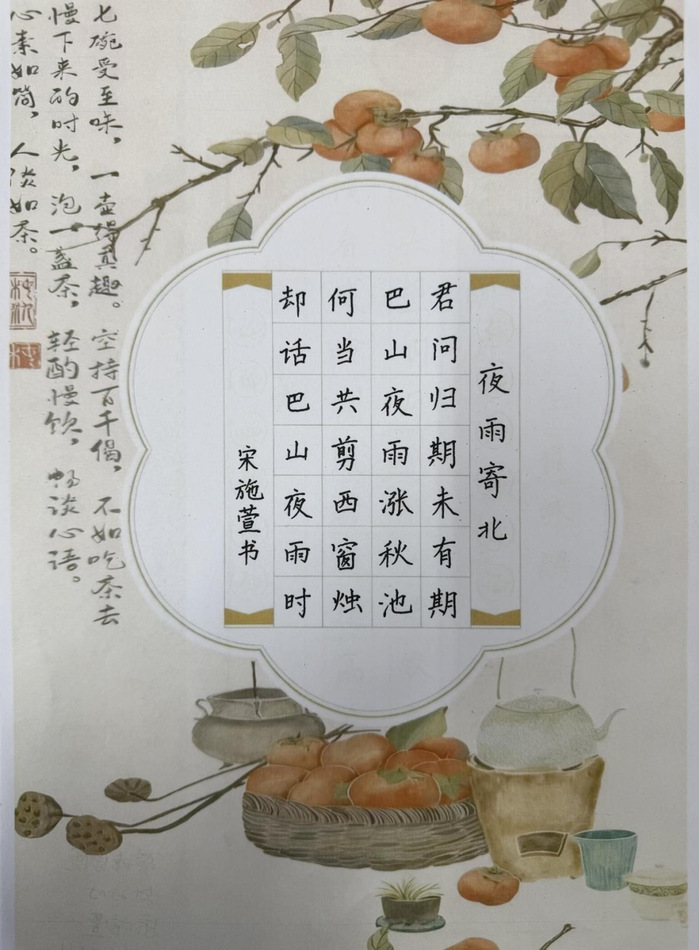 夜雨寄北
君问归期未有期
巴山夜雨涨秋池
何当共剪西窗烛
却话巴山夜雨时
宋施萱书
七碗受至味，一壶得真趣。空持百千偈，不如吃茶去
慢下来的时光，泡一盏茶，轻酌慢饮，畅谈心语。
心素如简，人淡如茶。